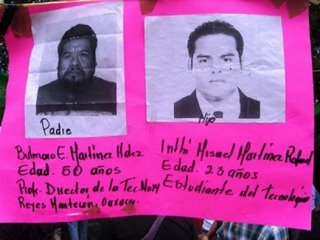 Padre
Bulmaro E. Martínez Hdez
Edad. 50 años
Prof. Director de la Tec. Norm
Reyes Mantecón, Oaxaca.
Hijo
Inthi Mismel Martínez Rafael
Edad. 23 años
Estudiante del tecnológico